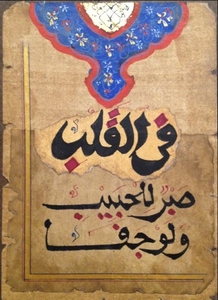 في القلب
صبرٌ للحبيب
ولو جفا